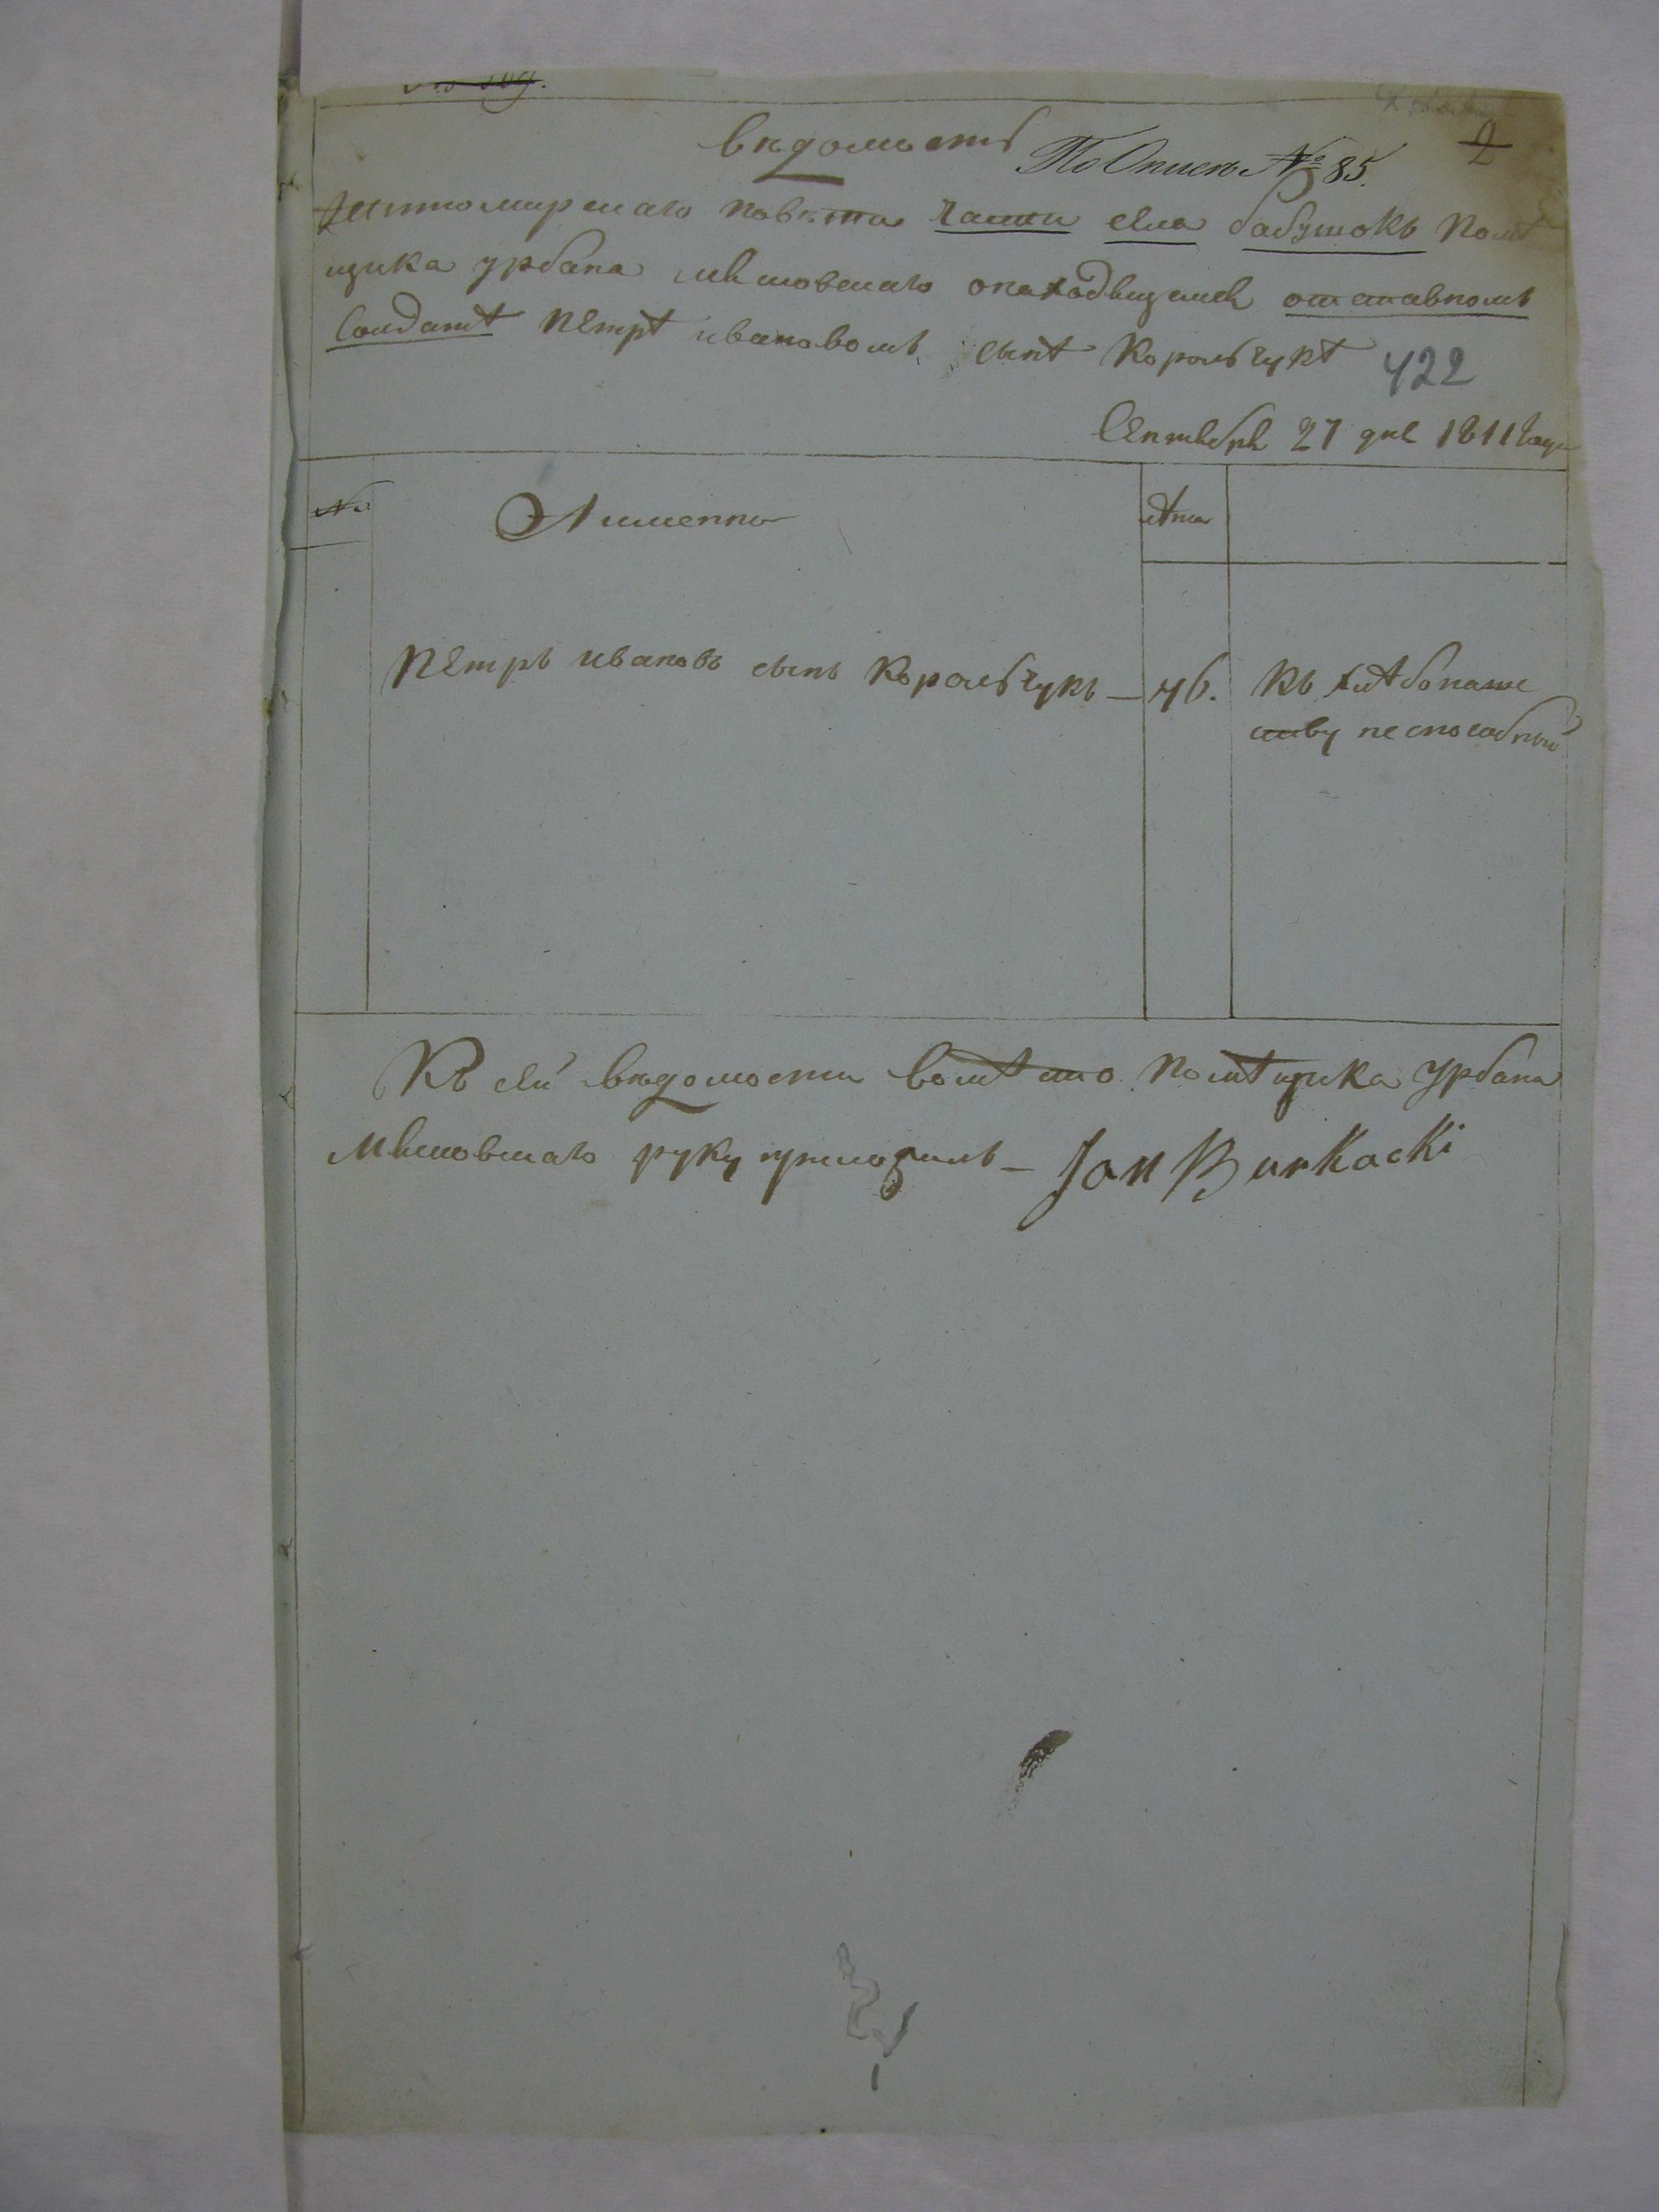 ведомость По Описи № 85. 2
Житомирскаго повѣта части села бабушокъ помѣ
щика урбана Мяновскаго о находящемся отставномъ
Солдатѣ Петрѣ ивановомъ сынѣ Корольчукѣ 422
Сентября 27 дня 1811 года
№ А именно лѣта
Петръ ивановъ сынъ Корольчукъ — 46. къ хлѣбопаше
ству неспособный
Къ сей ведомости вомѣсто помѣщика урбана
Мяновскаго руку приложилъ — Jan Burkacki